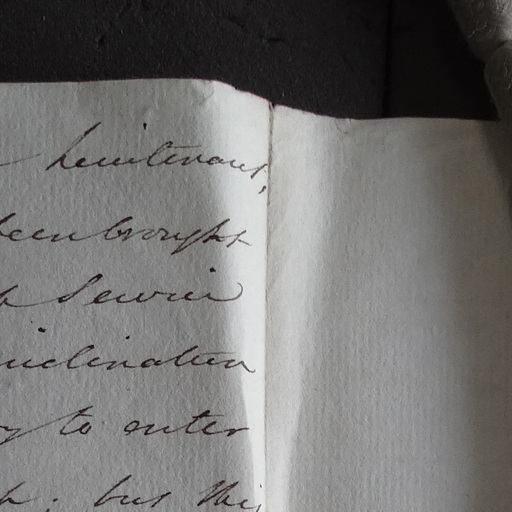 Lieutenant,
been brought
Service
inclination
to enter
but this